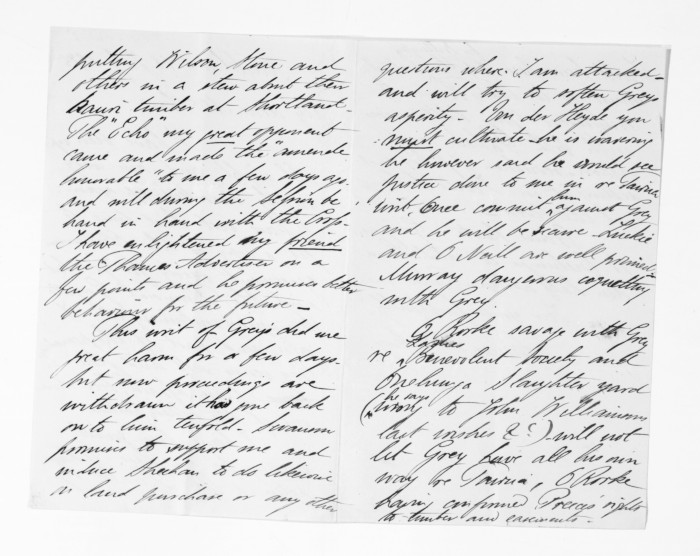 putting Wilson, Stone and
others in a stew about their
Kauri timber at Shortland.
The "Echo" my great opponent
came and made the "amende
honorable" to me a few days ago.
and will during the Session be
hand in hand with the Cross.
I have enlightened my friend
the Thames Advertiser on a
few points and he promises better
behaviour for the future -
This writ of Grey's did me
great harm for a few days -
but now proceedings are
withdrawn it has gone back
on to him tenfold. Swanson
promises to support me and
induce Sheehan to do likewise
in land purchase or any other
questions where I am attacked -
and will try to soften Grey's
asperity - Van der Heyde you
must cultivate - he is wavering
he however said he would see
justice done to me in re Tairua
writ, Once commit him against Grey
and he will be secure -
and O'Neill are well primed -
Murray dangerous coquetting
with Grey.
O'Rorke savage with Grey
re Ladies Benevolent Society and
Onehunga Slaughter yard
(he says to John Williamson's
last wishes &c?) will not
let Grey have all his own
way re Tairua, O'Rorke
having confirmed Preece's rights
to timber and easements -